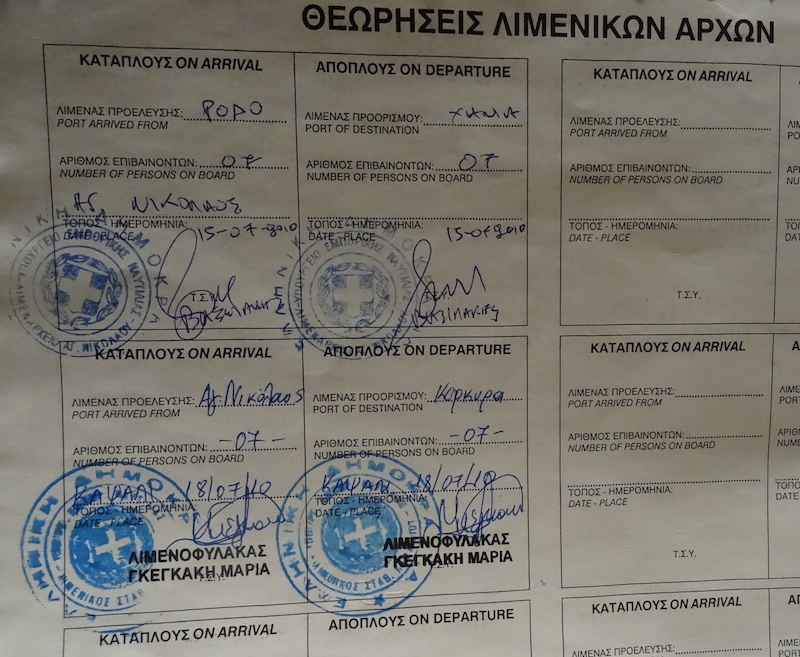 ΘΕΩΡΗΣΕΙΣ ΛΙΜΕΝΙΚΩΝ ΑΡΧΩΝ
ΚΑΤΑΠΛΟΥΣ ON ARRIVAL
ΛΙΜΕΝΑΣ ΠΡΟΕΛΕΥΣΗΣ: ΡΟΔΟ
PORT ARRIVED FROM
ΑΡΙΘΜΟΣ ΕΠΙΒΑΙΝΟΝΤΩΝ: 07
NUMBER OF PERSONS ON BOARD
ΑΓ. ΝΙΚΟΛΑΟΣ
ΤΟΠΟΣ - ΗΜΕΡΟΜΗΝΙΑ: 15-07-2010
DATE - PLACE
Τ.Σ.Υ.
ΑΠΟΠΛΟΥΣ ON DEPARTURE
ΛΙΜΕΝΑΣ ΠΡΟΟΡΙΣΜΟΥ: ΧΑΝΙΑ
PORT OF DESTINATION
ΑΡΙΘΜΟΣ ΕΠΙΒΑΙΝΟΝΤΩΝ: 07
NUMBER OF PERSONS ON BOARD
ΤΟΠΟΣ - ΗΜΕΡΟΜΗΝΙΑ: 15-07-2010
DATE - PLACE
ΚΑΤΑΠΛΟΥΣ ON ARRIVAL
ΛΙΜΕΝΑΣ ΠΡΟΕΛΕΥΣΗΣ:
PORT ARRIVED FROM
ΑΡΙΘΜΟΣ ΕΠΙΒΑΙΝΟΝΤΩΝ:
NUMBER OF PERSONS ON BOARD
ΤΟΠΟΣ - ΗΜΕΡΟΜΗΝΙΑ:
DATE - PLACE
Τ.Σ.Υ.
ΚΑΤΑΠΛΟΥΣ ON ARRIVAL
ΛΙΜΕΝΑΣ ΠΡΟΕΛΕΥΣΗΣ: Αγ. Νικόλαος
PORT ARRIVED FROM
ΑΡΙΘΜΟΣ ΕΠΙΒΑΙΝΟΝΤΩΝ: -07-
NUMBER OF PERSONS ON BOARD
18/07/10
ΤΟΠΟΣ - ΗΜΕΡΟΜΗΝΙΑ:
DATE - PLACE
ΛΙΜΕΝΟΦΥΛΑΚΑΣ
ΓΚΕΓΚΑΚΗ ΜΑΡΙΑ
Τ.Σ.Υ.
ΑΠΟΠΛΟΥΣ ON DEPARTURE
ΛΙΜΕΝΑΣ ΠΡΟΟΡΙΣΜΟΥ: Κέρκυρα
PORT OF DESTINATION
ΑΡΙΘΜΟΣ ΕΠΙΒΑΙΝΟΝΤΩΝ: -07-
NUMBER OF PERSONS ON BOARD
18/07/10
ΤΟΠΟΣ - ΗΜΕΡΟΜΗΝΙΑ:
DATE - PLACE
ΛΙΜΕΝΟΦΥΛΑΚΑΣ
ΓΚΕΓΚΑΚΗ ΜΑΡΙΑ
ΚΑΤΑΠΛΟΥΣ ON ARRIVAL
ΛΙΜΕΝΑΣ ΠΡΟΕΛΕΥΣΗΣ:
PORT ARRIVED FROM
ΑΡΙΘΜΟΣ ΕΠΙΒΑΙΝΟΝΤΩΝ:
NUMBER OF PERSONS ON BOARD
ΤΟΠΟΣ - ΗΜΕΡΟΜΗΝΙΑ:
DATE - PLACE
Τ.Σ.Υ.
ΚΑΤΑΠΛΟΥΣ ON ARRIVAL
ΑΠΟΠΛΟΥΣ ON DEPARTURE
ΚΑΤΑΠΛΟΥΣ ON ARRIVAL
ΛΙΜΕΝΑΣ ΠΡΟΕΛΕΥΣΗΣ: